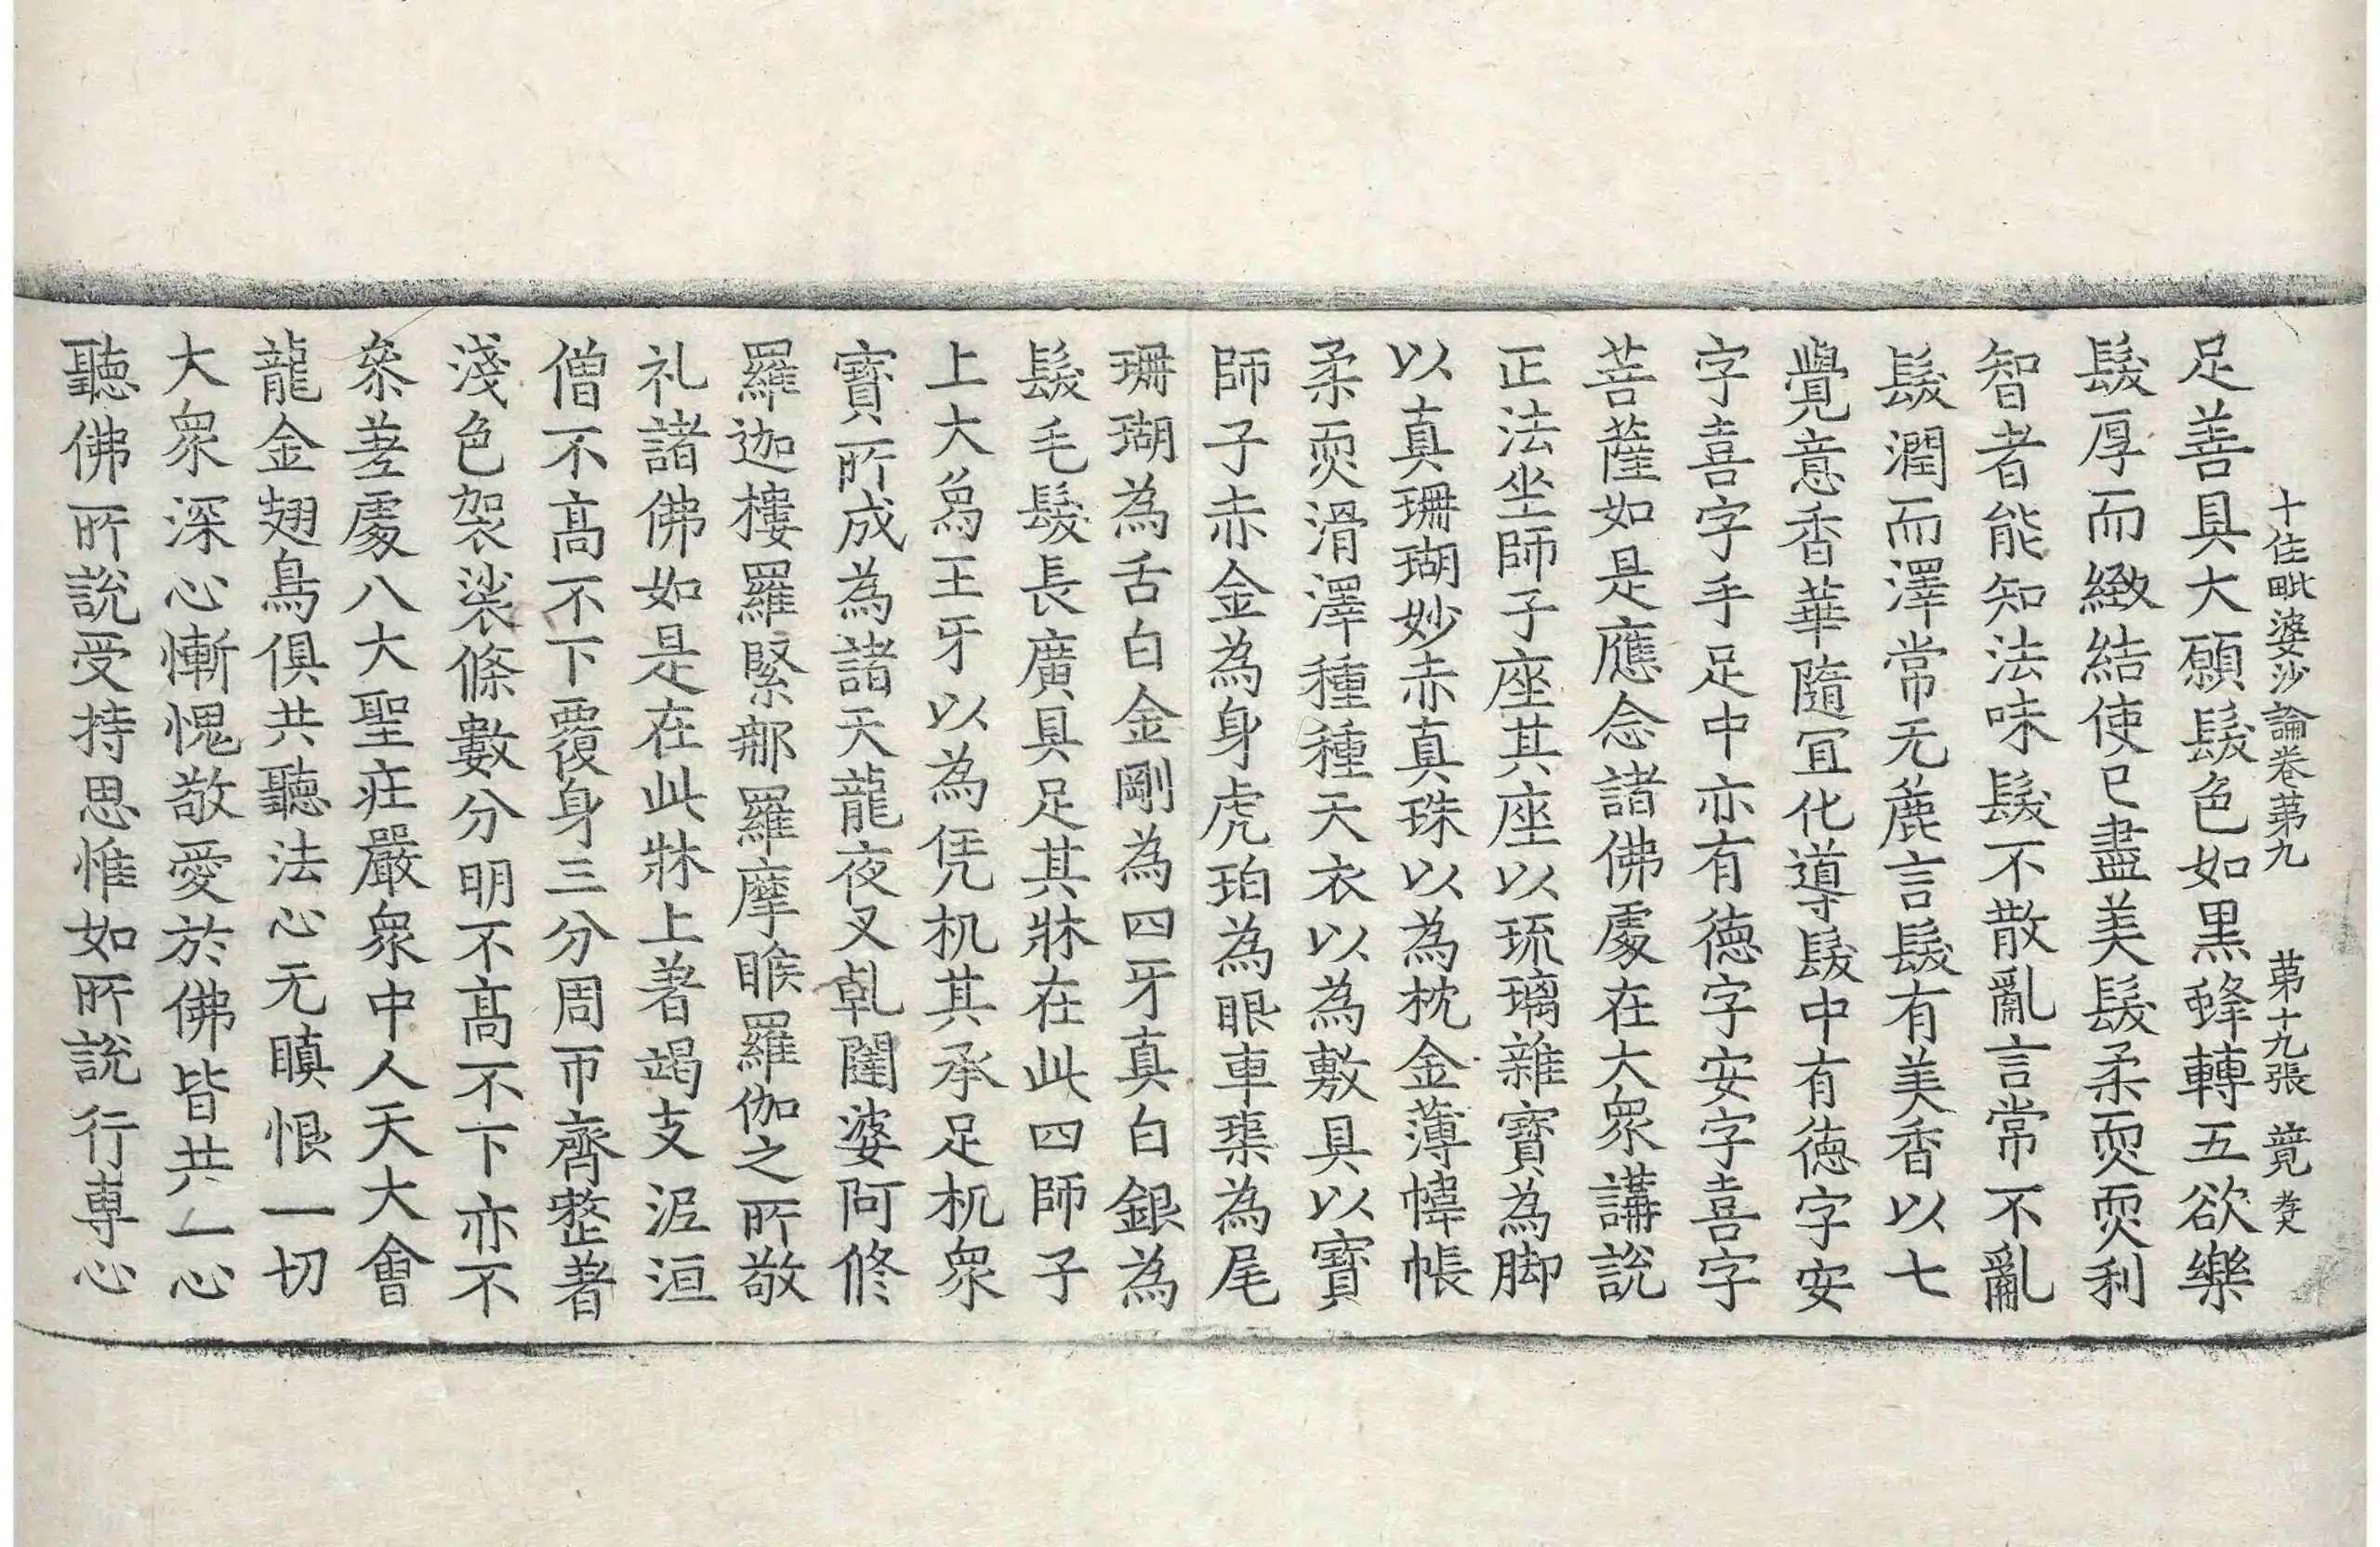 十住毗婆沙論卷苐九　苐十九張　竟
足善具大願髮色如黒蜂轉五欲樂
髮厚而緻結使已盡美髮柔耎耎利
智者能知法味髮不散亂言常不亂
髮潤而澤常无麁言髮有美香以七
覺意香華隨冝化導髮中有德字安
字喜字手足中亦有德字安字喜字
菩薩如是應念諸佛處在大衆講說
正法坐師子座其座以琉璃雜寶為脚
以真珊瑚妙赤真珠以為枕金薄幃帳
柔耎滑澤種種天衣以為敷具以寶
師子赤金為身虎珀為眼車𤦲為尾
珊瑚為舌白金剛為四牙真白銀為
髮毛髮長廣具足其牀在此四師子
上大為王牙以為凭机其承足机衆
寶所成為諸天龍夜叉乹闥婆阿修
羅迦樓羅緊那羅摩睺羅伽之所敬
礼諸佛如是在此牀上著竭支泥洹
僧不高不下覆身三分周帀齊整著
淺色袈裟條數分明不高不下亦不
叅差處八大聖庄嚴衆中人天大會
龍金翅鳥俱共聽法心无瞋恨一切
大衆深心慚愧敬愛於佛皆共一心
聽佛所說受持思惟如所說行專心